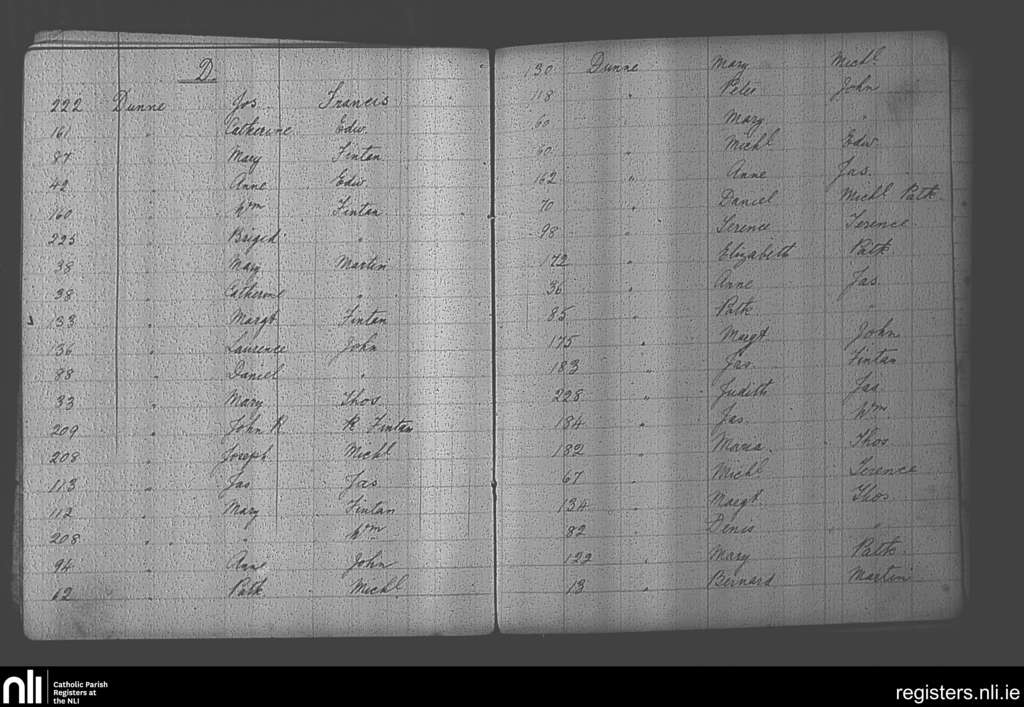 D.
222 Dunne Jos. Francis
161 " Catherine Edw.
87 " Mary Fintan
42 " Anne Edw.
160 " Wm Fintan
225 " Brigid "
38 " Mary Martin
38 " Catherine "
133 " Margt. Fintan
136 " Laurence John
88 " Daniel "
33 " Mary Thos.
209 " John R. R Fintan
208 " Joseph Michl
113 " Jas. Jas
112 " Mary Fintan
208 " " Wm
94 " Anne John
62 " Patk. Michl
130 Dunne Mary Michl
118 " Peter John
60 " Mary "
60 " Michl Edw.
162 " Anne Jas.
70 " Daniel Michl Patk.
98 " Terence Terence
172 " Elizabeth Patk
36 " Anne Jas.
85 " Patk "
175 " Margt John
183 " Jas. Fintan
228 " Judith Jas
184 " Jas. Wm
182 " Maria. Thos
67 " Michl Terence
134 " Margt. Thos
82 " Denis "
122 " Mary Patk.
13 " Bernard Martin
nli Catholic Parish
Registers at
the NLI
registers.nli.ie